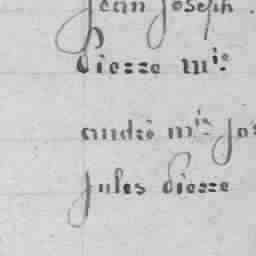 jean joseph.
Pierre mie
andré mie jos
jules Pierre